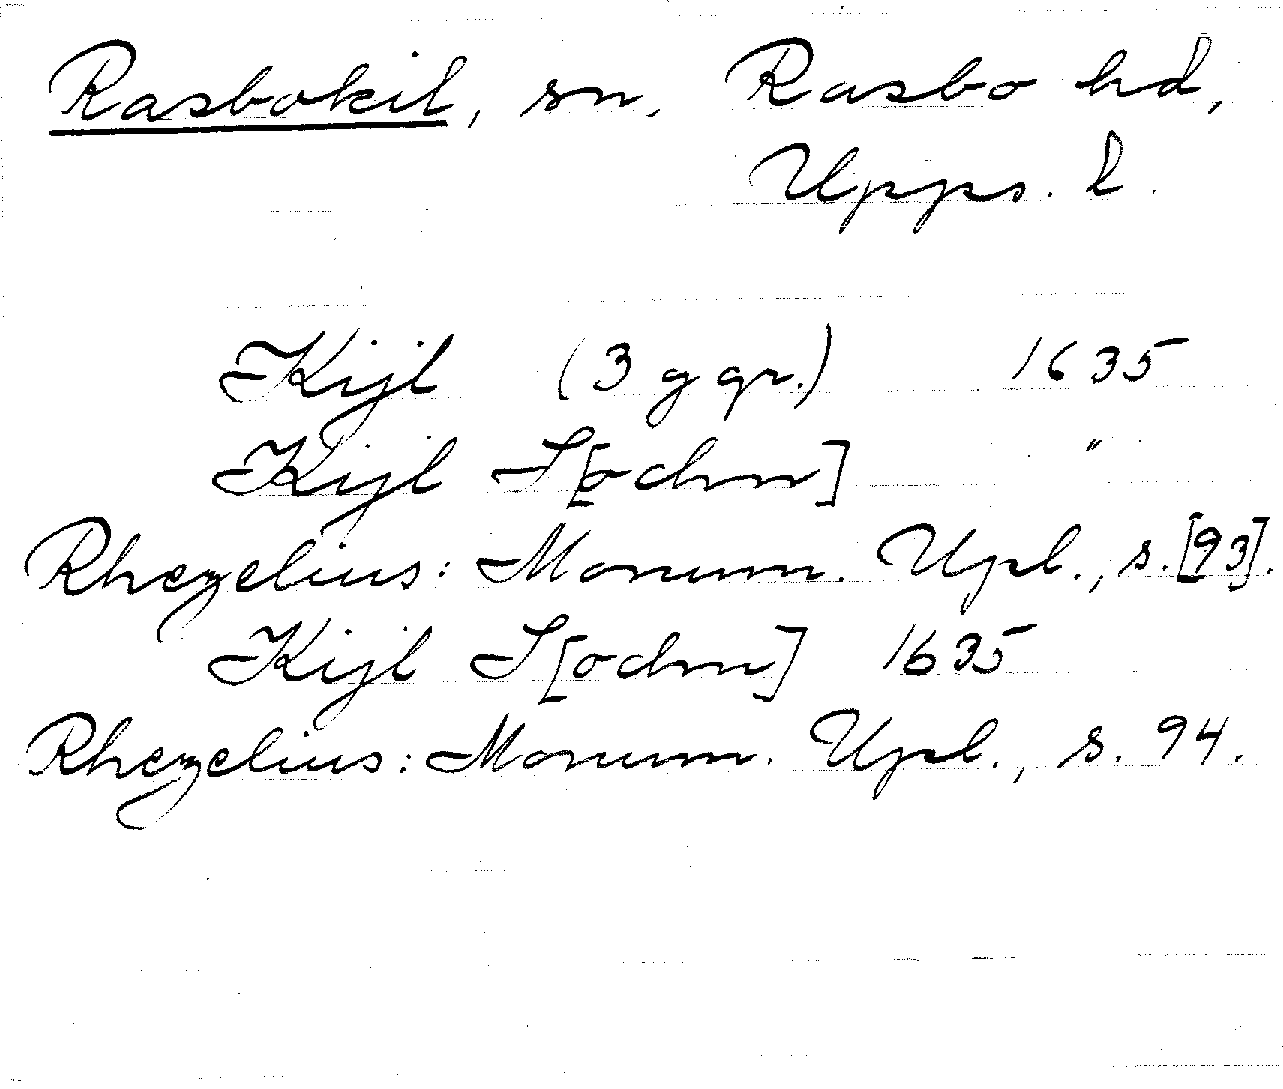 Rasbokil, sn, Rasbo hd,
Upps. l.
Kijl (3 g gr.) 1635
Kijl S[ochn] "
Rhezelius: Monum. Upl., s. [93].
Kijl S[ochn] 1635
Rhezelius: Monum. Upl., s. 94.